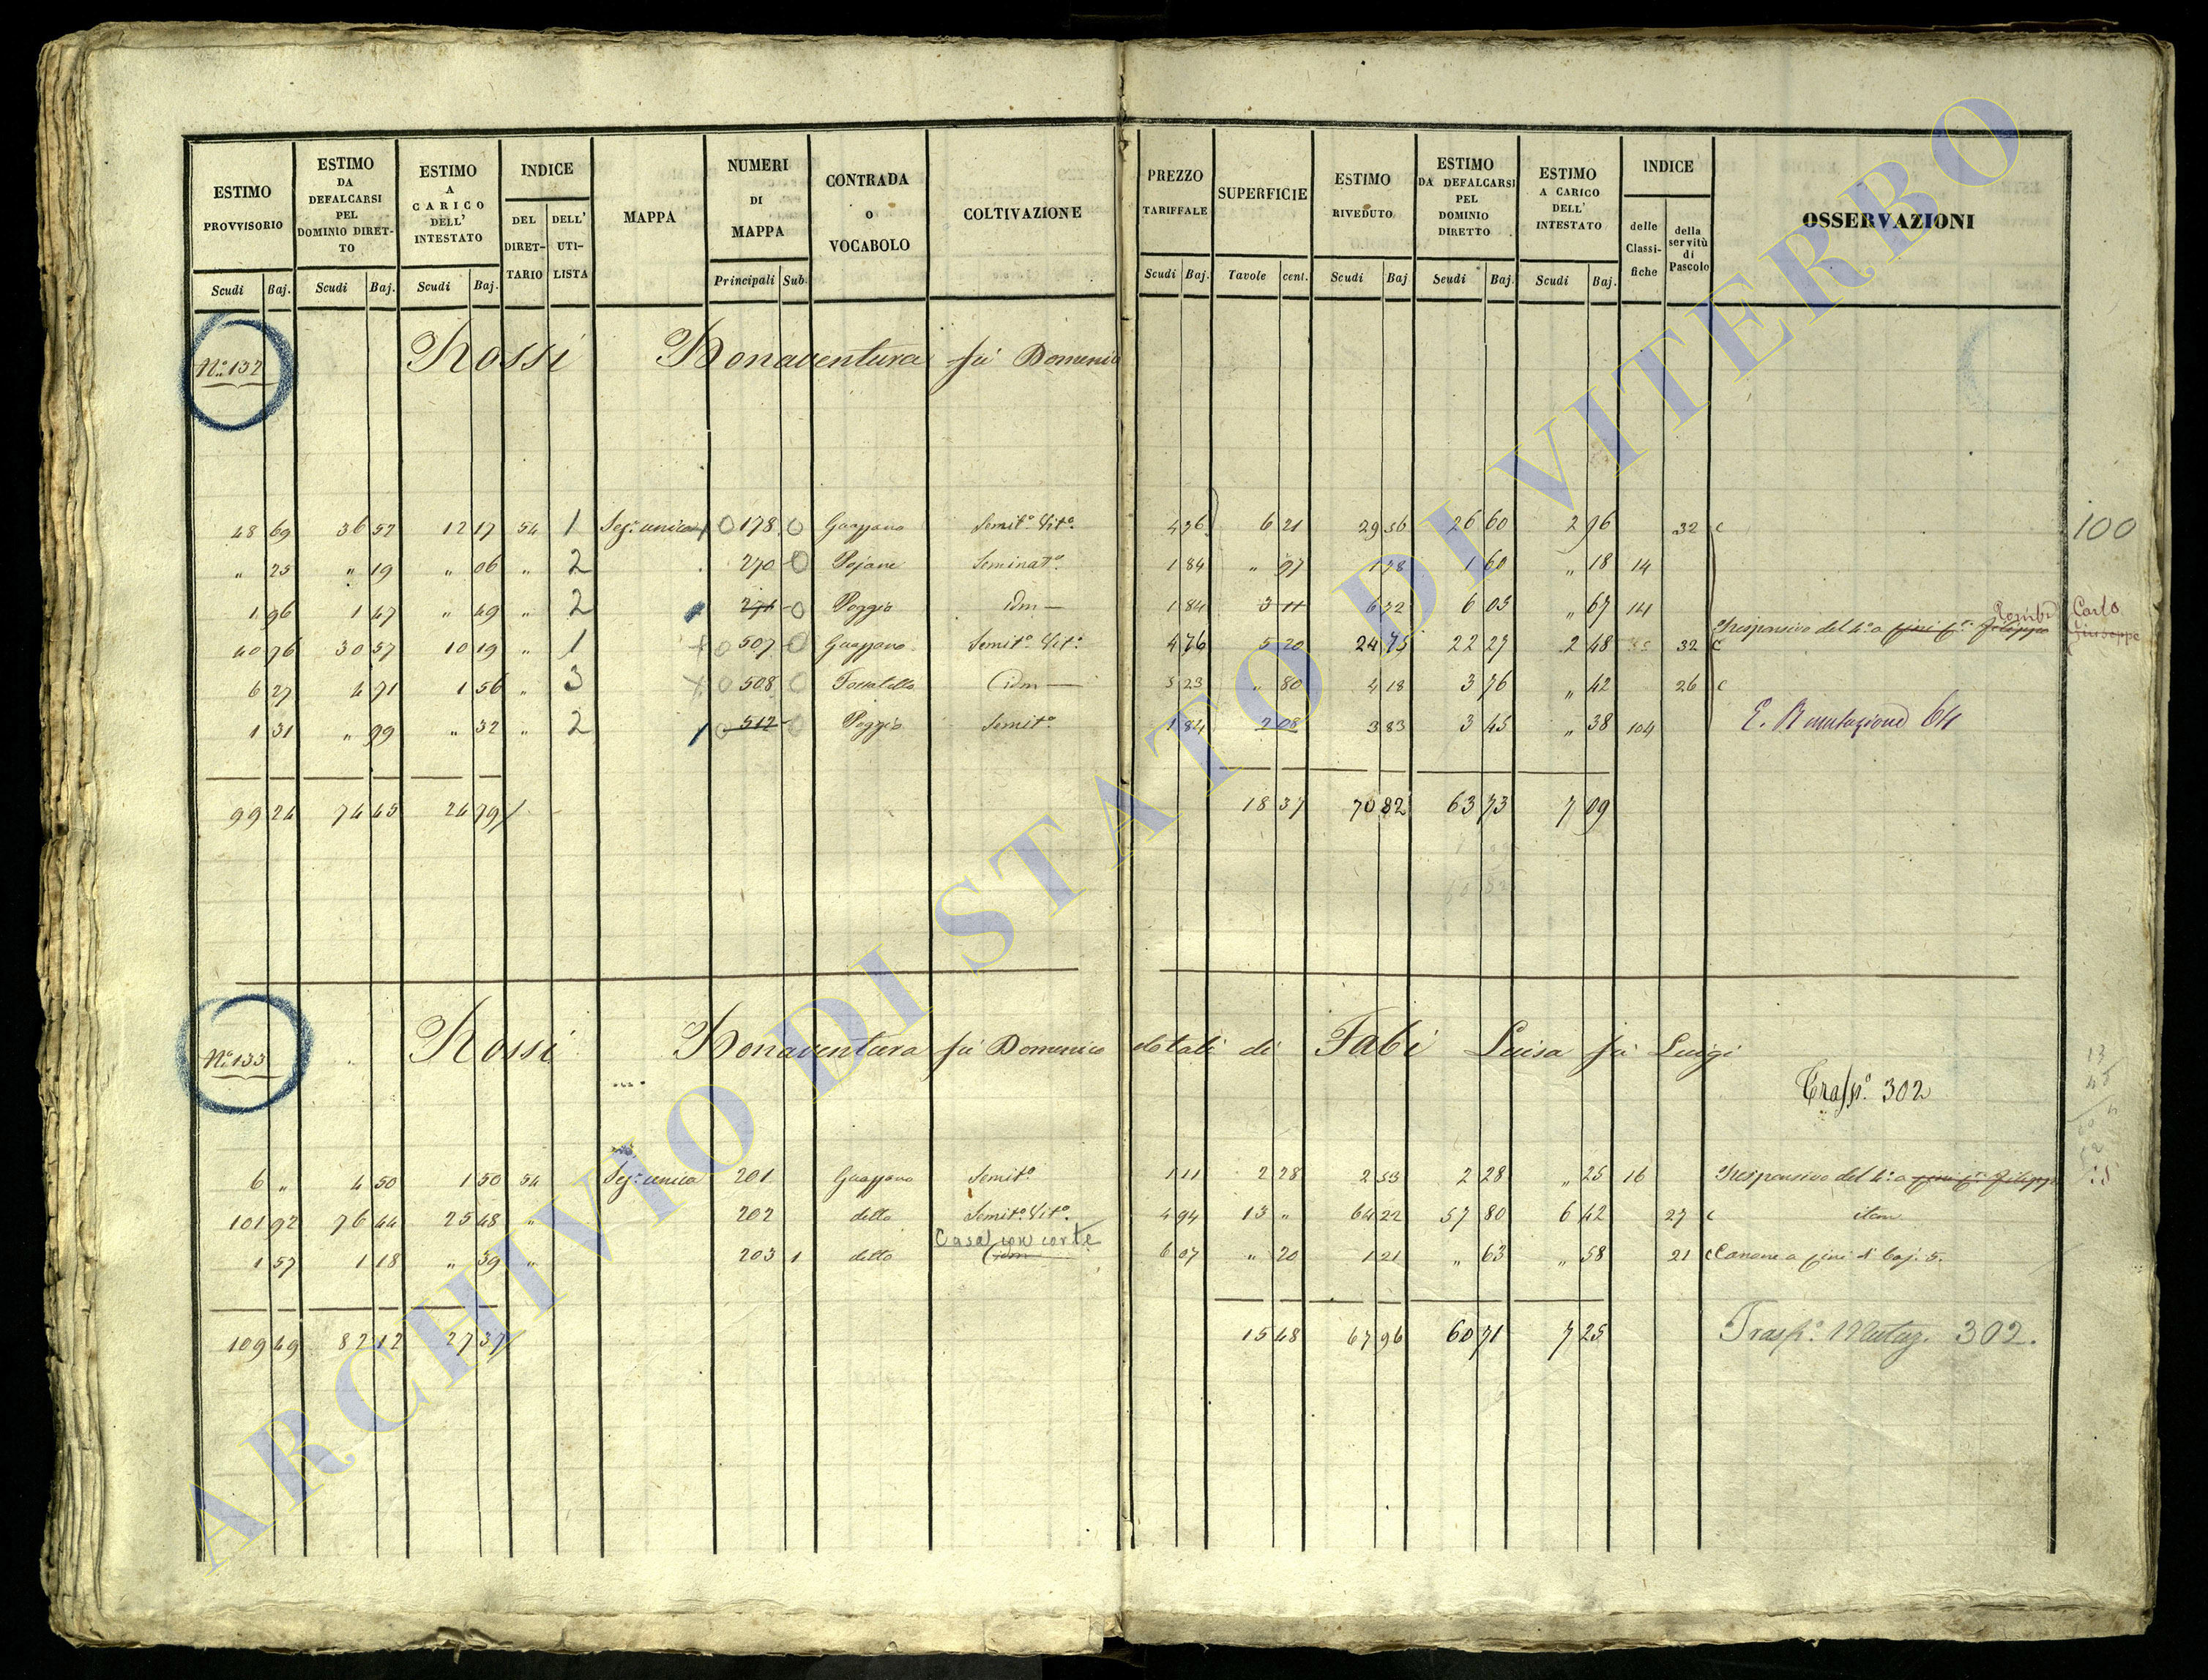 ESTIMO PROVVISORIO Scudi Baj.
ESTIMO DA DEFALCARSI PEL DOMINIO DIRET-TO Scudi Baj.
ESTIMO A CARICO DELL' INTESTATO Scudi Baj.
INDICE DEL DIRET-TARIO DELL' UTI-LISTA
MAPPA
NUMERI DI MAPPA Principali Sub.
CONTRADA o VOCABOLO
COLTIVAZIONE
PREZZO TARIFFALE Scudi Baj.
SUPERFICIE Tavole cent.
ESTIMO RIVEDUTO Scudi Baj
ESTIMO DA DEFALCARSI PEL DOMINIO DIRETTO Scudi Baj.
ESTIMO A CARICO DELL' INTESTATO Scudi Baj.
INDICE delle Classi-fiche della servitù di Pascolo
OSSERVAZIONI
N.º 132 Rossi Bonaventura fù Domenico
48 69 36 52 12 17 54 1 Sez.e unica 0 178 0 Semit.º Vit.º 4 76 6 21 29 56 26 60 2 96 32 c 100
" 25 " 19 " 06 " 2 270 0 Seminat.º 1 84 " 97 1 78 1 60 " 18 14
1 96 1 47 " 49 " 2 271 0 Poggio idm 1 84 3 11 6 72 6 05 " 67 14
40 76 30 57 10 19 " 1 0 507 0 Semit.º Vit.º 4 76 5 20 24 75 22 27 2 48 32 c Responsivo del 4.º a Carlo Giuseppe
6 27 4 71 1 56 " 3 0 508 0 idm 5 23 " 80 4 18 3 76 " 42 26 c
1 31 " 99 " 32 " 2 0 512 0 Poggio Semit.º 1 84 2 08 3 83 3 45 " 38 104 64
99 24 74 45 24 79 18 37 70 82 63 73 7 09
N.º 133 Rossi Bonaventura fù Domenico dotali di Fabi Luisa fù Luigi
Trasp.º 302
6 " 4 50 1 50 54 Sez.e unica 201 Semit.º 1 11 2 28 2 53 2 28 " 25 16 Responsivo del 4.º a
101 92 76 44 25 48 " 202 detto Semit.º Vit.º 4 94 13 " 64 22 57 80 6 42 27 c item
Casa con corte
1 57 1 18 " 39 " 203 1 detto idm 6 07 " 20 1 21 " 63 " 58 21 c Canone a di baj. 5.
109 49 82 12 27 37 15 48 67 96 60 71 7 25 Trasp.º Mutaz. 302.
ARCHIVIO DI STATO DI VITERBO